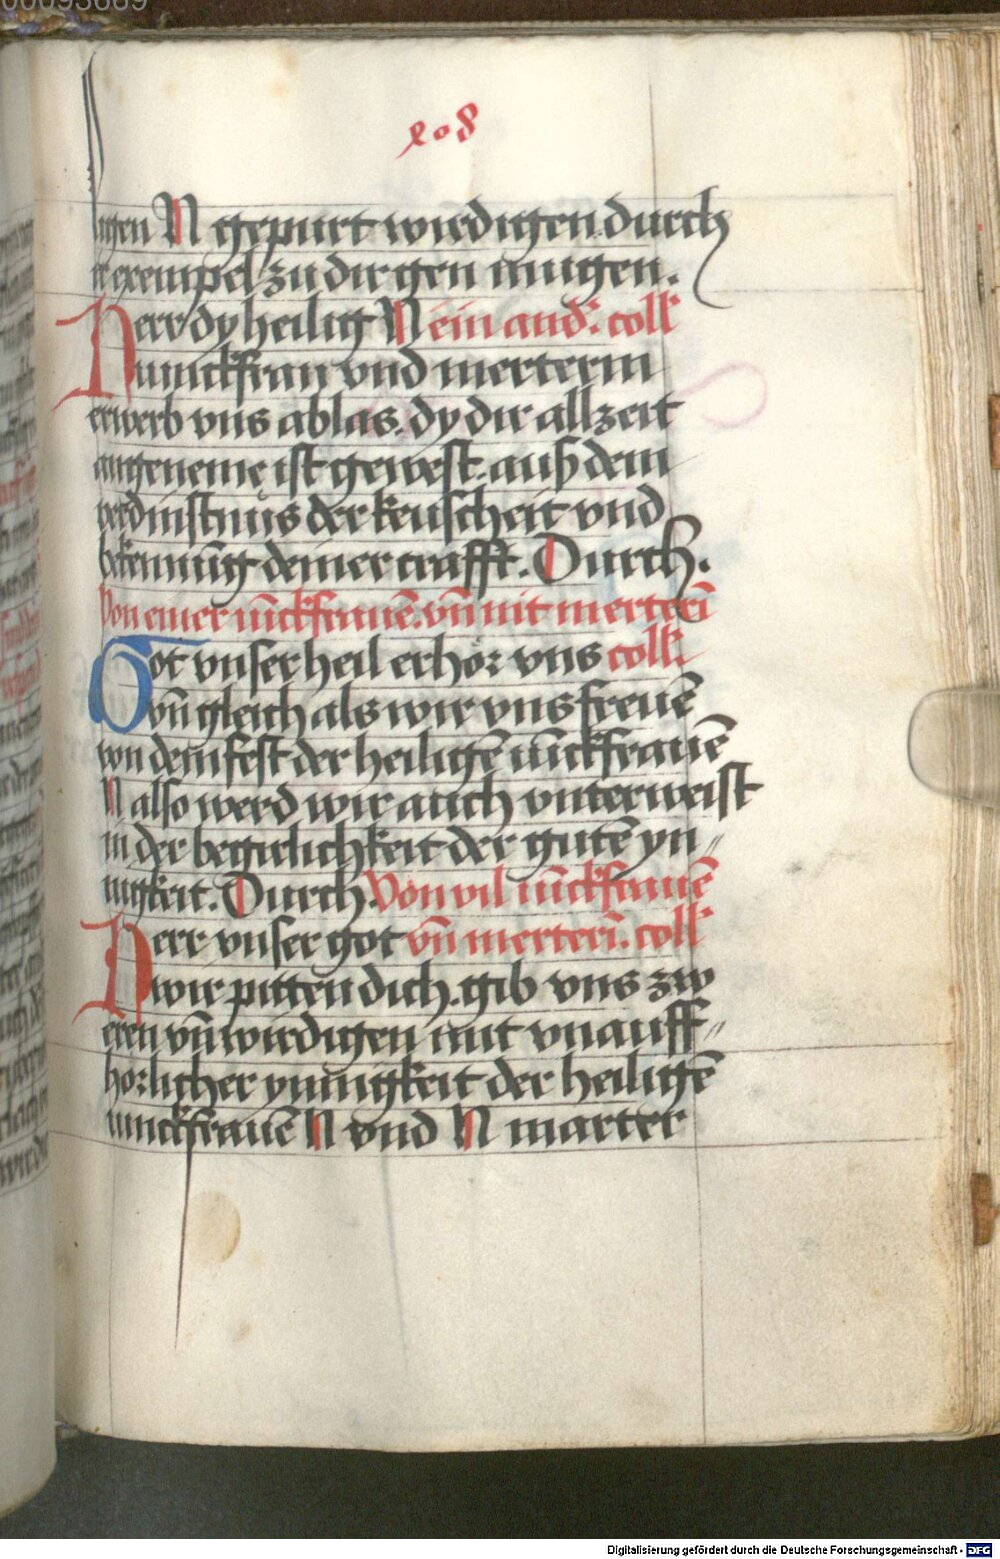 00093669
208
ligen N gepurt wirdigen durch
ir exempel zu dir gen mugen.
Herr dy heilig N ein and'. coll'
iunckfrau vnd merterin
erwerb vns ablas. dy dir allzeit
angeneme ist gewest. auß dem
verdinstnus der keuscheit vnd
bekennūg deiner crafft. Durch.
Von einer iūckfrauē. vn̄ nit merteri̅
Got vnser heil erhör vns coll'.
vn̄ gleich als wir vns freuē
von dem fest der heiligē iūckfrauē
N also werd wir auch vnterweist
in der begirlichkeit der gutē yn〃
nigkeit. Durch. Von vil iūckfrauē
Herr vnser got vn̄ merteri̅. coll'
wir pitten dich. gib vns zw
eren vn̄ wirdigen mit vnauff〃
horlicher ynnigkeit der heiligē
iunckfrauē N vnd N marter
Digitalisierung gefördert durch die Deutsche Forschungsgemeinschaft - DFG